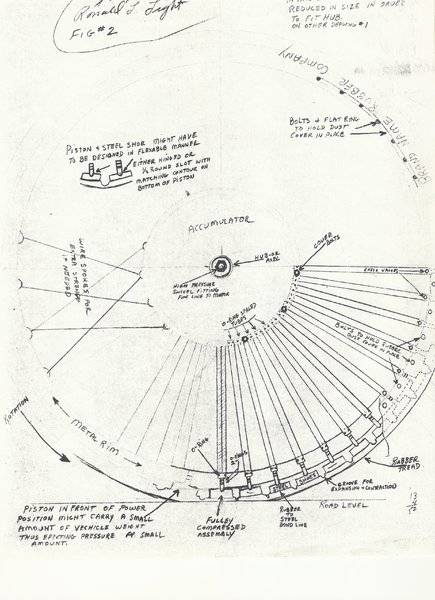 Ronald L. Light
FIG #2
REDUCED IN SIZE IN ORDER
TO FIT HUB.
ON OTHER DRAWING #1
COMPANY
RUBBER
BRAND NAME
BOLTS & FLAT RING
TO HOLD DUST
COVER IN PLACE
PISTON & STEEL SHOE MIGHT HAVE
TO BE DESIGNED IN FLEXABLE MANNER
EITHER HINGED OR
½ ROUND SLOT WITH
MATCHING CONTOUR ON
BOTTOM OF PISTON
ACCUMULATOR
HUB-OR
AXEL
COVER
BOLTS
HIGH PRESSURE
SWIVEL FITTING
FOR LINE TO MOTOR
O-RING SEALED
TUBES
WIRE SPOKES FOR
EXTRA STRENGTH
IF NEEDED
BOLTS TO HOLD RUBBER
DUST COVER IN PLACE
ROTATION
METAL RIM
O-RING
O-RING
RUBBER
TREAD
STEEL
GROOVE FOR
EXPANSION & CONTRACTION
ROAD LEVEL
RUBBER
TO
STEEL
BOND LINE
FULLEY
COMPRESSED
ASSEMBLY
PISTON IN FRONT OF POWER
POSITION MIGHT CARRY A SMALL
AMOUNT OF VECHICLE WEIGHT
THUS EFICTING PRESSURE A SMALL
AMOUNT.